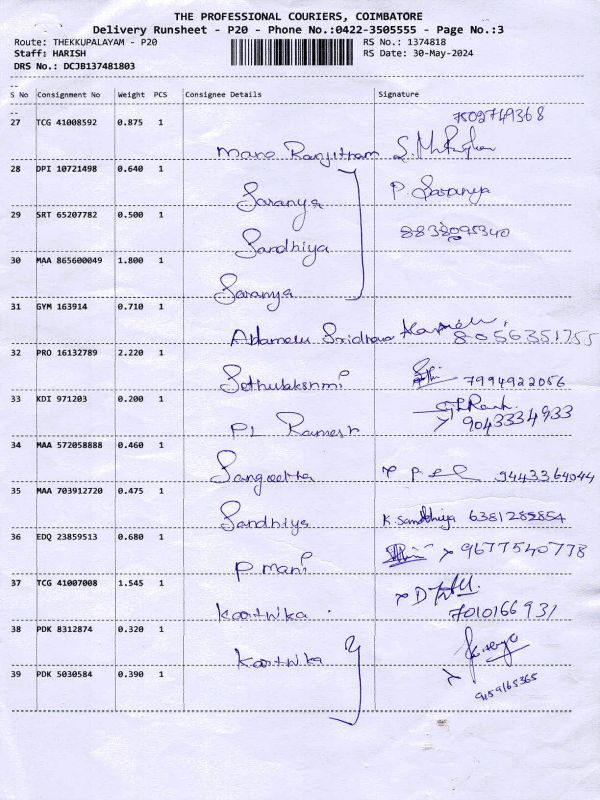 THE PROFESSIONAL COURIERS, COIMBATORE
Delivery Runsheet - P20 - Phone No.:0422-3505555 - Page No.:3
Route: THEKKUPALAYAM - P20 RS No.: 1374818
Staff: HARISH RS Date: 30-May-2024
DRS No.: DCJB137481803
S No Consignment No Weight PCS Consignee Details Signature
27 TCG 41008592 0.875 1 7502749368
Mano Ranjitham
28 DPI 10721498 0.640 1 P. Saranya
Saranya
29 SRT 65207782 0.500 1 8838095340
Sandhiya
30 MAA 865600049 1.800 1
Saranya
31 GYM 163914 0.710 1
Sridhara 8056351755
32 PRO 16132789 2.220 1
Sethulakshmi 7994922056
33 KDI 971203 0.200 1
PL Ramesh 9043334933
34 MAA 572058888 0.460 1
Sangeetha 9443364044
35 MAA 703912720 0.475 1
Sandhiya K. Sandhiya 6381289854
36 EDQ 23859513 0.680 1
P mani 9677540778
37 TCG 41007008 1.545 1
Karthika 7010166931
38 PDK 8312874 0.320 1
Karthika
39 PDK 5030584 0.390 1
9159165365